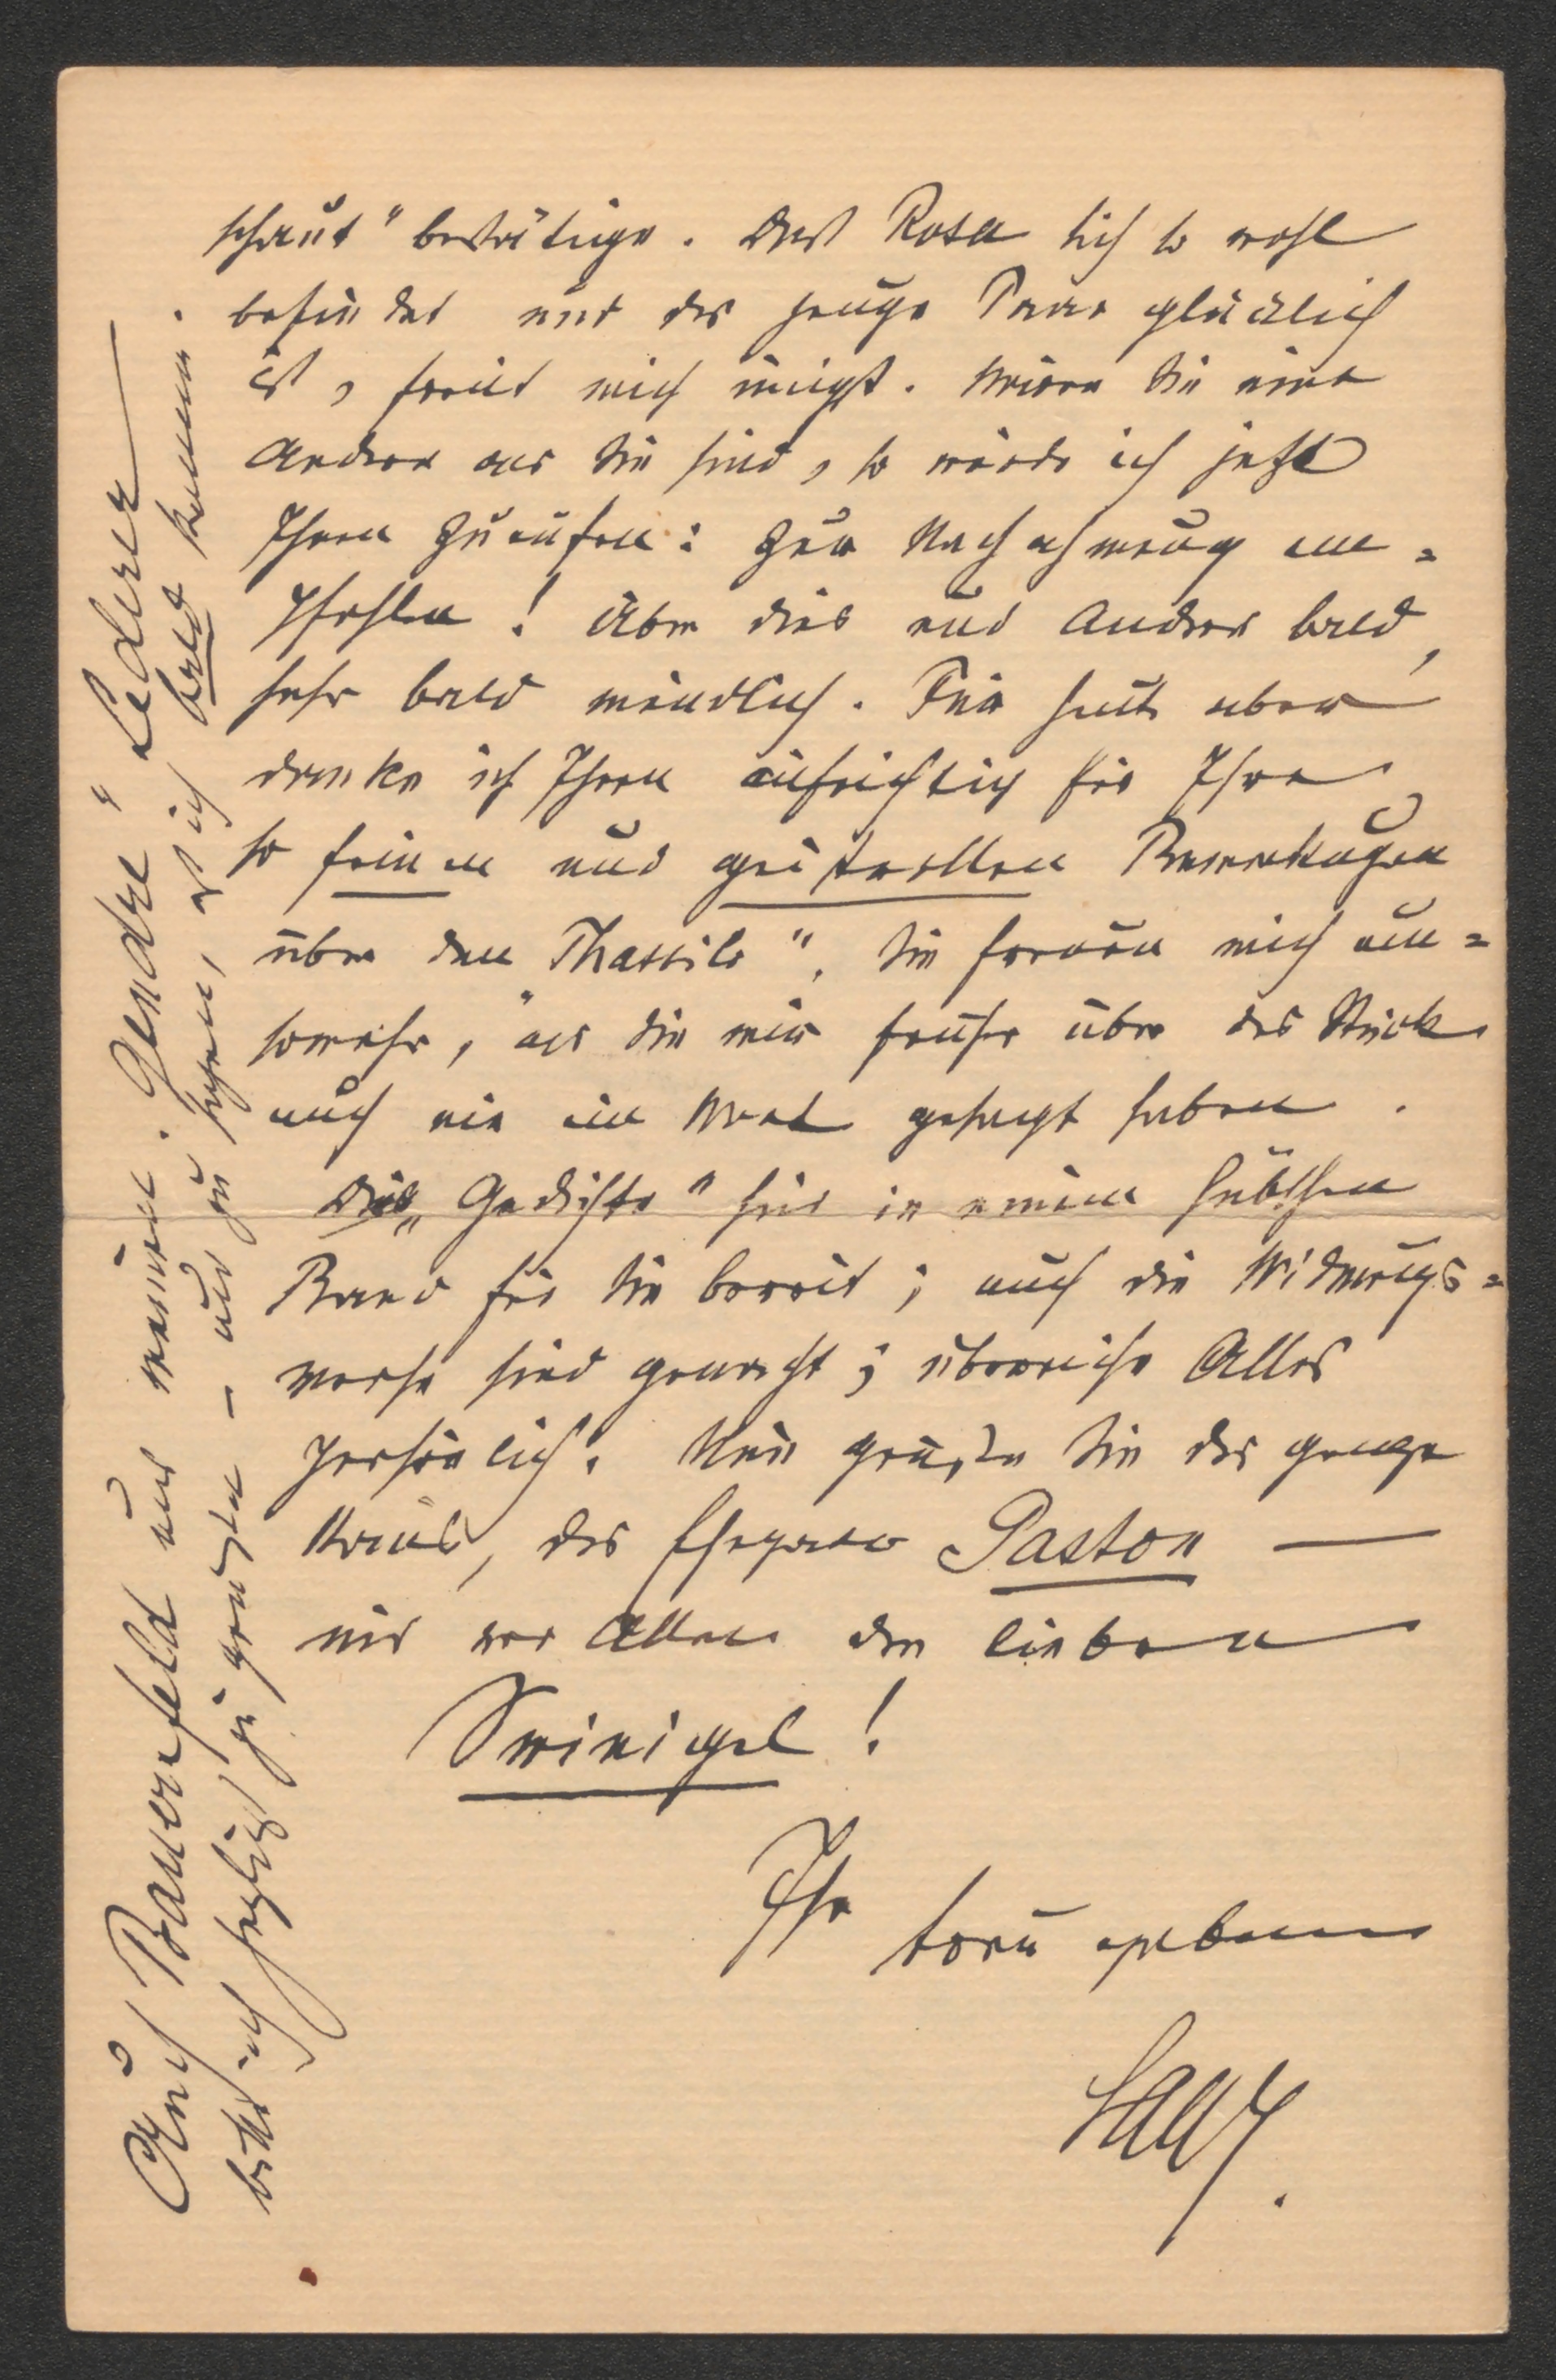 schaut" bestätige. Daß Rosa sich so wohl
befindet und das junge Paar glücklich
ist, freut mich innigst. Wären Sie eine
Andere als Sie sind, so würde ich jetzt
Ihnen zurufen: Zur Nachahmung em=
pfohlen! Über dies und Anderes bald,
sehr bald mündlich. Für heute aber
danke ich Ihnen aufrichtig für Ihre
so feinen und geistvollen Bemerkungen
über den „Thassilo". Sie freuen mich um=
somehr, als Sie mir früher über das Stück
auch nie ein Wort gesagt haben.
Die „Gedichte" sind in einem hübschen
Band für Sie bereit; auch die Widmungs=
verse sind gemacht; überreiche Alles
persönlich. Nun grüßen Sie das ganze
Haus, das Ehepaar Paston —
und vor Allem den lieben
Swinigel!
Ihr
treu ergebener
Saar.
Auch Bauernfeld und meinen „Gendre" Lederer
bitte ich herzlichst zu grüßen – und zu sagen, daß ich bald komme.